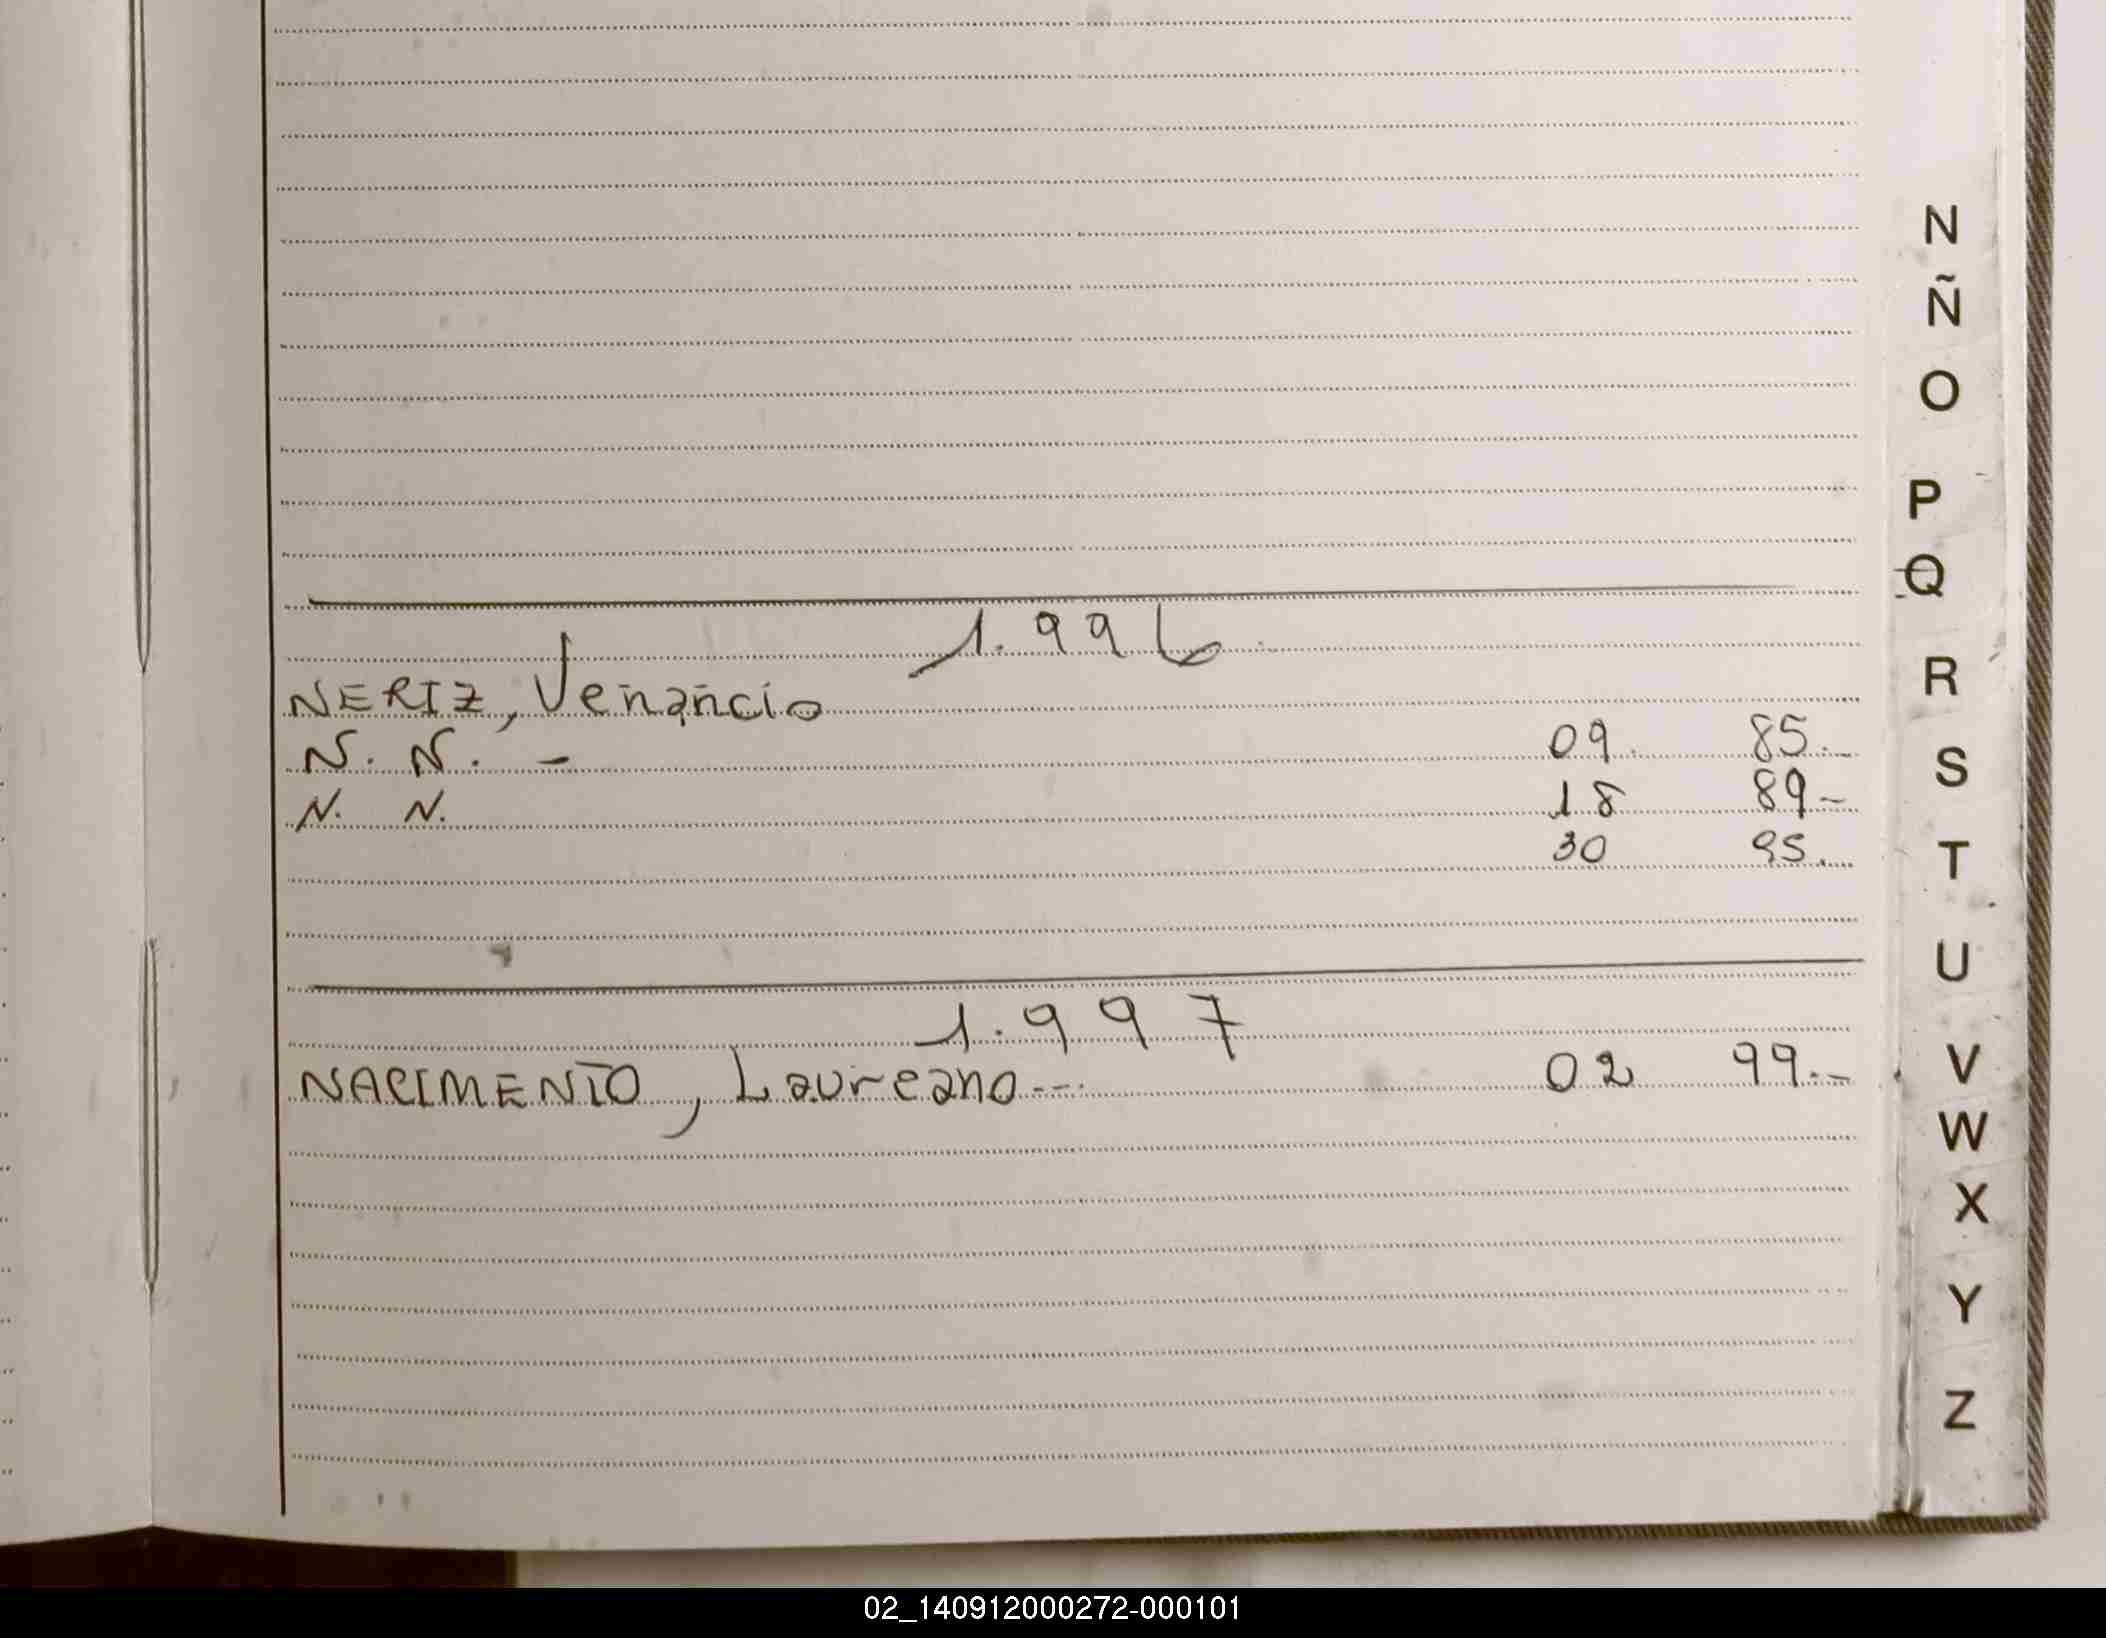 1.996
NERIZ, Venancio 09 85.-
N. N. - 18 89-
N. N. 30 95.
1.997
NACIMENTO, Laureano--- 02 99.-
N
Ñ
O
P
Q
R
S
T
U
V
W
X
Y
Z
02_140912000272-000101